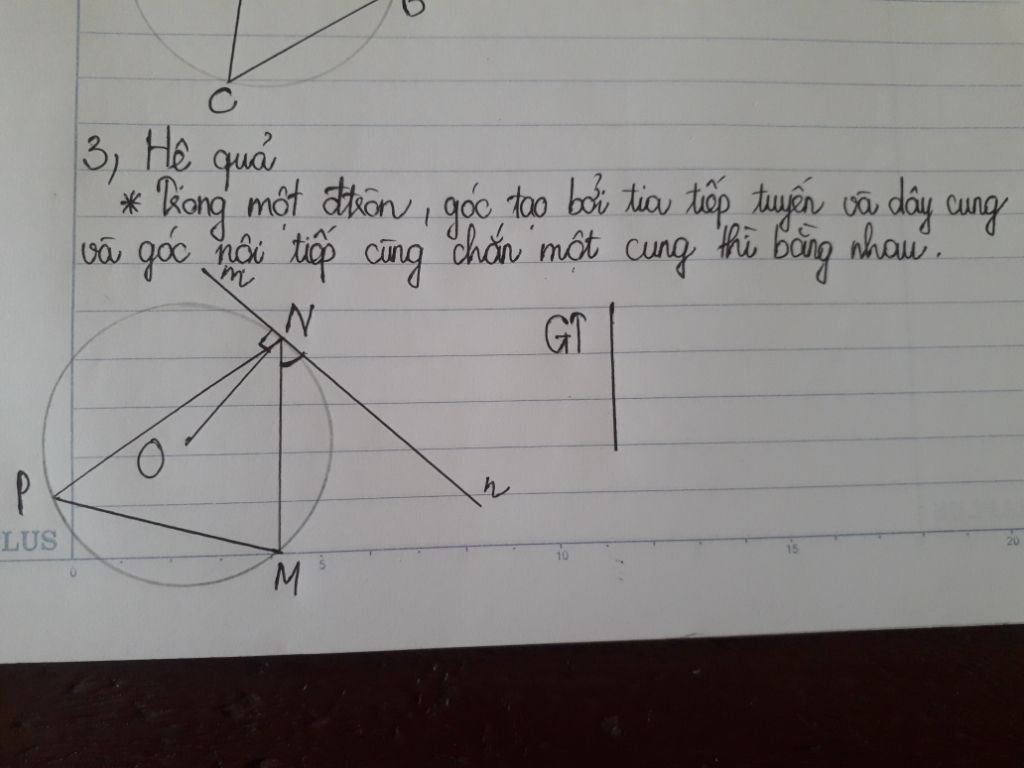 B
C
3, Hệ quả
* Trong một đtròn, góc tạo bởi tia tiếp tuyến và dây cung
và góc nội tiếp cùng chắn một cung thì bằng nhau.
m
N
GT
O
P
n
PLUS
M
0 5 10 15 20